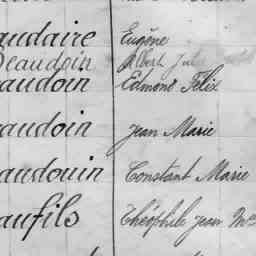 audaire Eugène
eaudoin Albert
audoin Edmond Félix
audoin Jean Marie
audouin Constant Marie
aufils Théophile Jean Mie